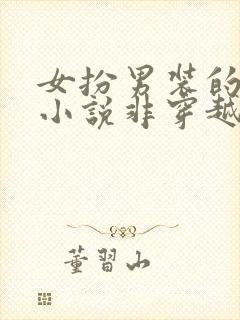 女扮男装的
小说非穿越
董習山